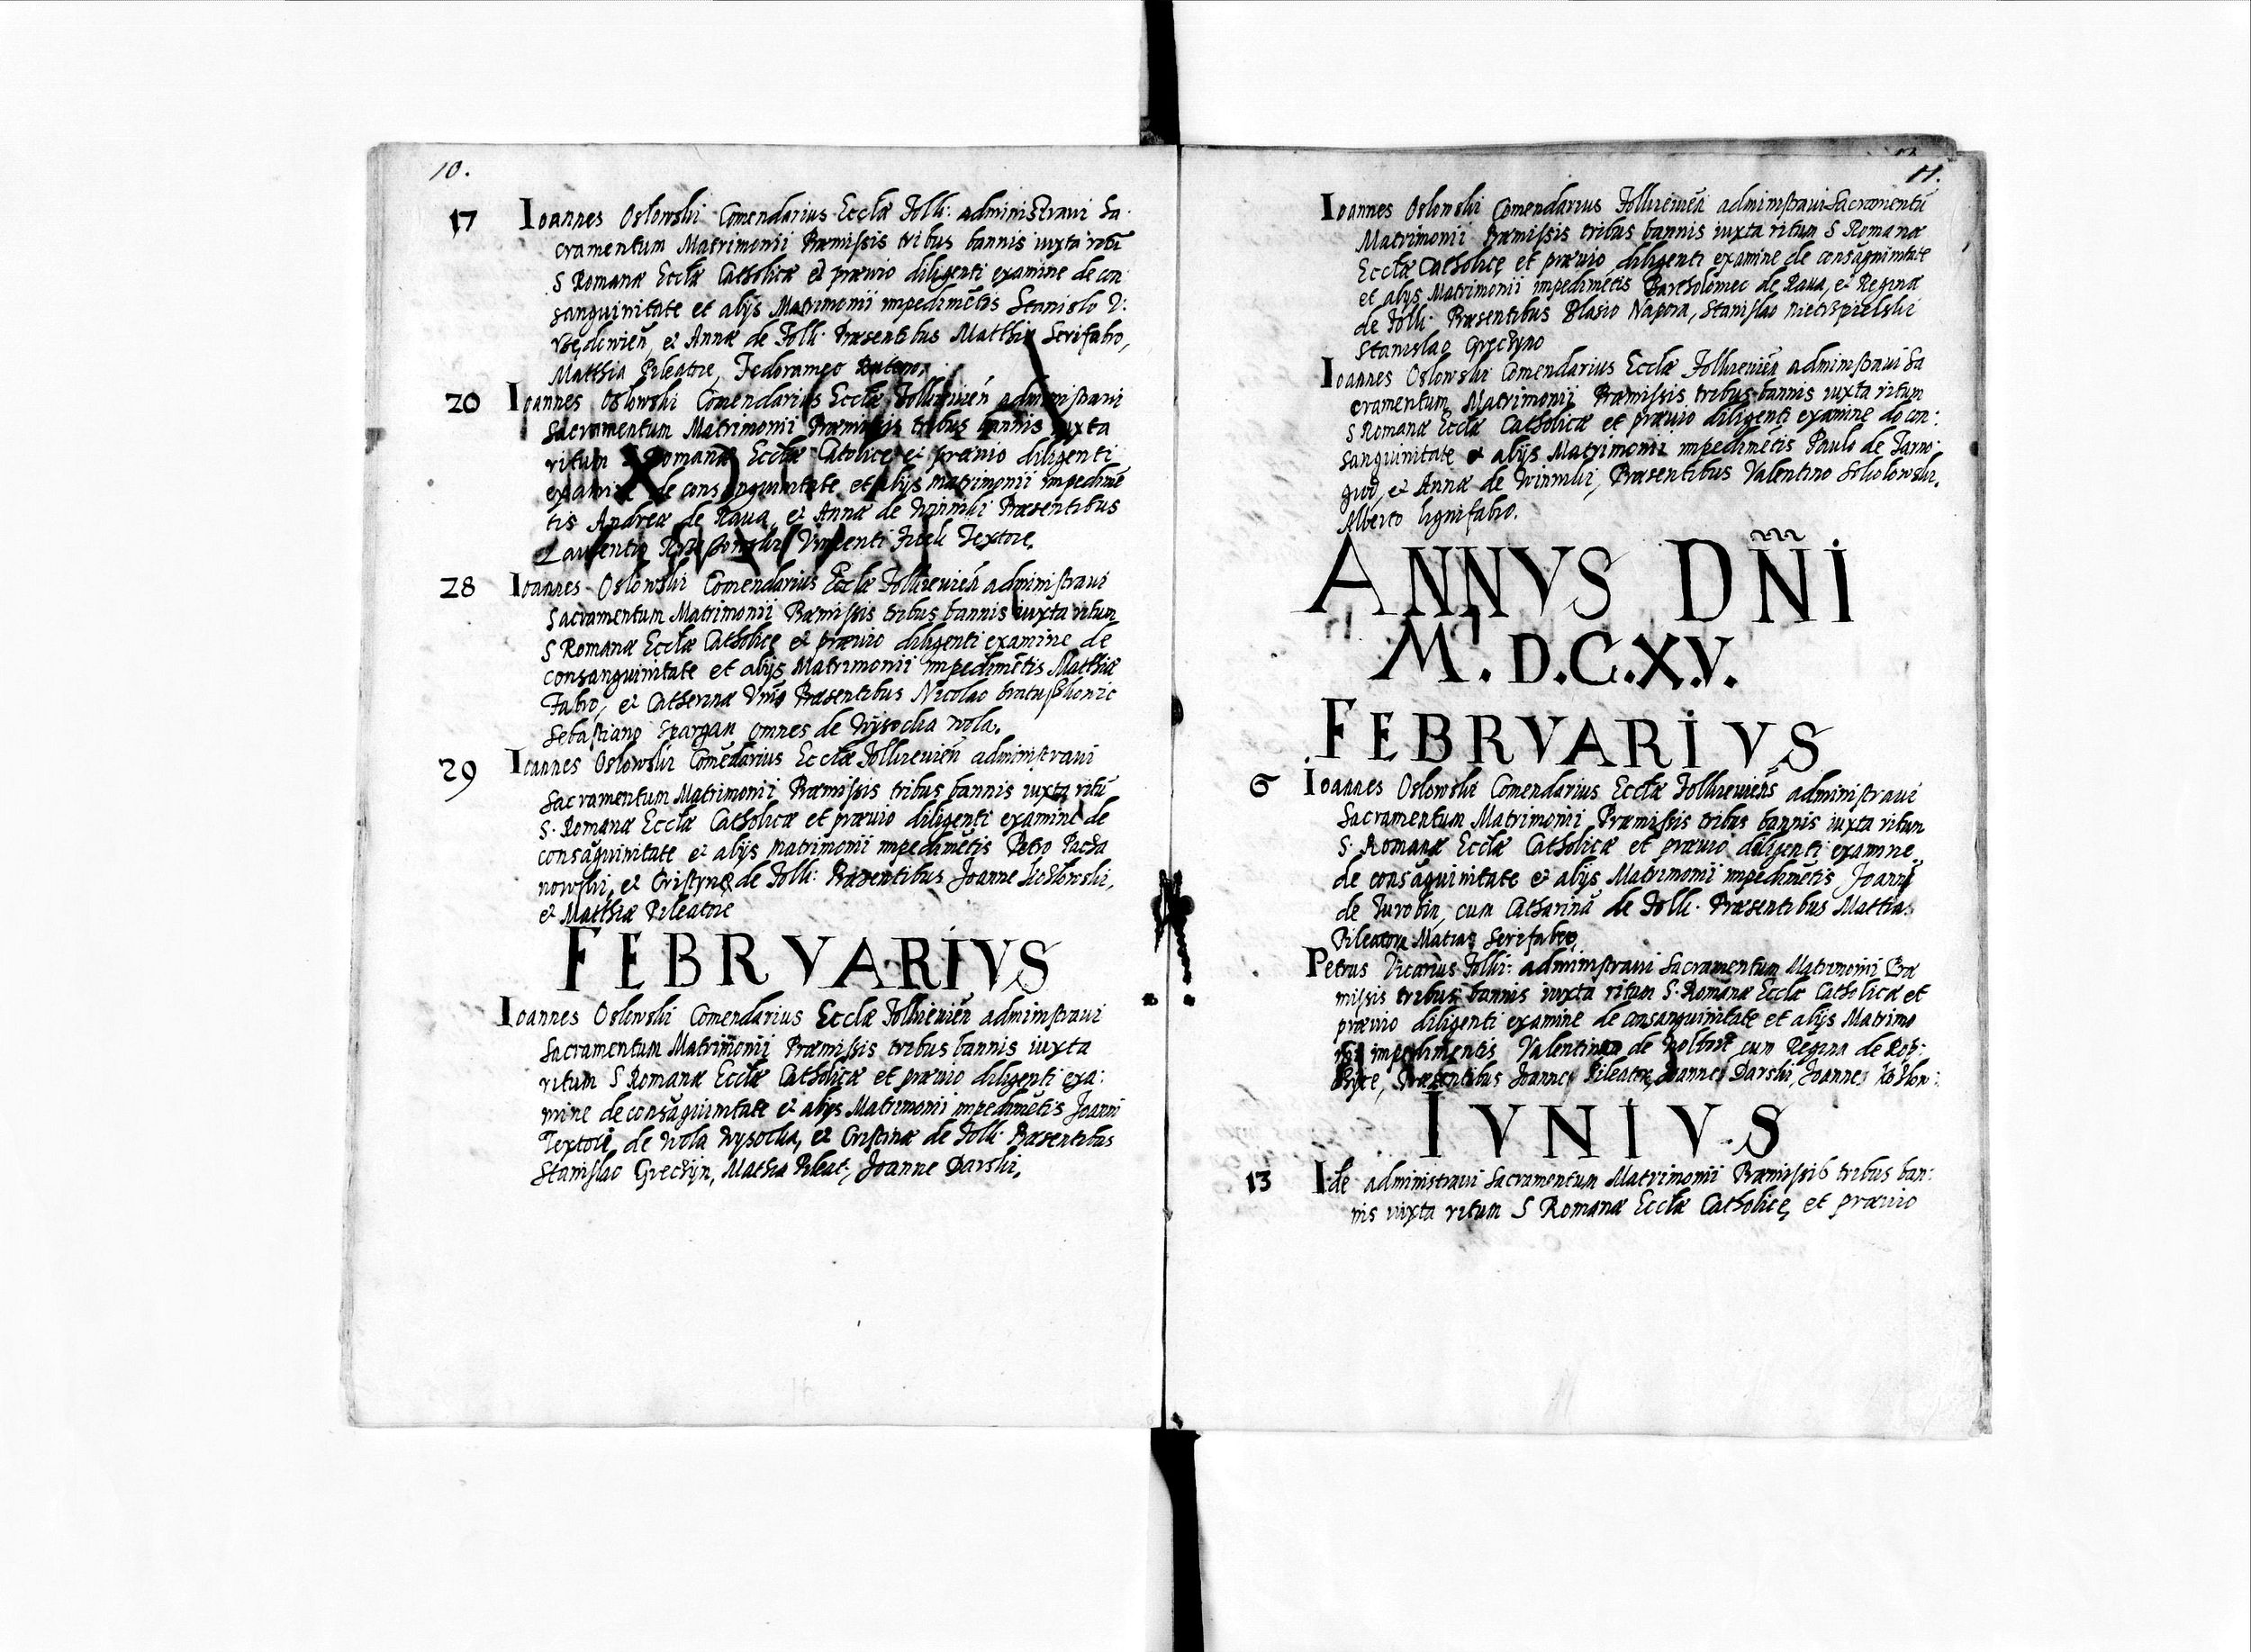 10.
17 Ioannes Oslowski Comendarius Ecclæ Tolk: administraui Sa
cramentum Matrimonii Præmissis tribus bannis iuxta ritũ
S Romanæ Ecclæ Catholicæ et præuio diligenti examine de con
sanguinitate et alijs Matrimonii impedimẽtis Stanislo
et Annæ de Tolk: Præsentibus Matthia Serifabro,
Matthia Pileatore,
20 Ioannes Oslowski Comendarius Ecclæ administraui
Sacramentum Matrimonii Præmissis tribus bannis iuxta
ritum Romanæ Ecclæ Catolice et præuio diligenti
examine de consanguinitate et alijs Matrimonii impedimẽ
tis Andreæ de Raua, et Annæ de Præsentibus
Laurentio Textore.
28 Ioannes Oslowski Comendarius Ecclæ administraui
Sacramentum Matrimonii Præmissis tribus bannis iuxta ritum
S Romanæ Ecclæ Catholicę et præuio diligenti examine de
consanguinitate et alijs Matrimonii impedimẽtis Matthiæ
Fabro, et Catherinæ Præsentibus Nicolao
Sebastiano omnes de Wÿsocka Wola.
29 Ioannes Oslowski Comẽdarius Ecclæ administraui
Sacramentum Matrimonii Præmissis tribus bannis iuxta ritũ
S. Romanæ Ecclæ Catholicæ et præuio diligenti examine de
consãguinitate et alijs Matrimonii impedimẽtis Petro Pacza
nowski, et Cristynę de Tolk: Præsentibus Joanne Kozlowski,
et Matthiæ Pileatore
FEBRVARIVS
Ioannes Oslowski Comendarius Ecclæ administraui
Sacramentum Matrimonii Præmissis tribus bannis iuxta
ritum S Romanæ Ecclæ Catholicæ et præuio diligenti exa:
mine de consãguinitate et alijs Matrimonii impedimẽtis Joanni
Textori, de Wola Wysocka, et Cristinæ de Tolk: Præsentibus
Stanislao Greczÿn, Mathia Pileat:, Joanne Darski.
11.
Ioannes Oslowski Comendarius administraui Sacramentũ
Matrimonii Præmissis tribus bannis iuxta ritum S Romanæ
Ecclæ Catholicę et præuio diligenti examine de consãguinitate
et alijs Matrimonii impedimẽtis Bartholomeo de Raua, et Regina
de Tolk: Præsentibus Blasio Napora, Stanislao
Stanislao Greczÿno
Ioannes Oslowski Comendarius Ecclæ administraui Sa
cramentum Matrimonii Præmissis tribus bannis iuxta ritum
S Romanæ Ecclæ Catholicæ et præuio diligenti examine de con:
sanguinitate et alijs Matrimonii impedimẽtis Paulo de Tarno
et Annæ de Præsentibus Valentino
Alberto lignifabro.
ANNVS DÑI
M.D.C.XV.
FEBRVARIVS
6 Ioannes Oslowski Comendarius Ecclæ administraui
Sacramentum Matrimonii Præmissis tribus bannis iuxta ritum
S. Romanæ Ecclæ Catholicæ et præuio diligenti examine
de consãguinitate et alijs Matrimonii impedimẽtis Joanni
de Turobin, cum Catharinã de Tolk: Præsentibus Mattia
Pileatore Matias Serifabro
Petrus Vicarius Tolk: administraui Sacramentum Matrimonii Præ
missis tribus bannis iuxta ritum S. Romanæ Ecclæ Catholicæ et
præuio diligenti examine de consanguinitate et alijs Matrimo
nii impedimentis Valentinum de cum Regina de
Præsentibus Joannes Pileatore, Joannes Darski, Joannes
IVNIVS
13 Idẽ administraui Sacramentum Matrimonii Præmissis tribus ban:
nis iuxta ritum S Romanæ Ecclæ Catholicę et præuio